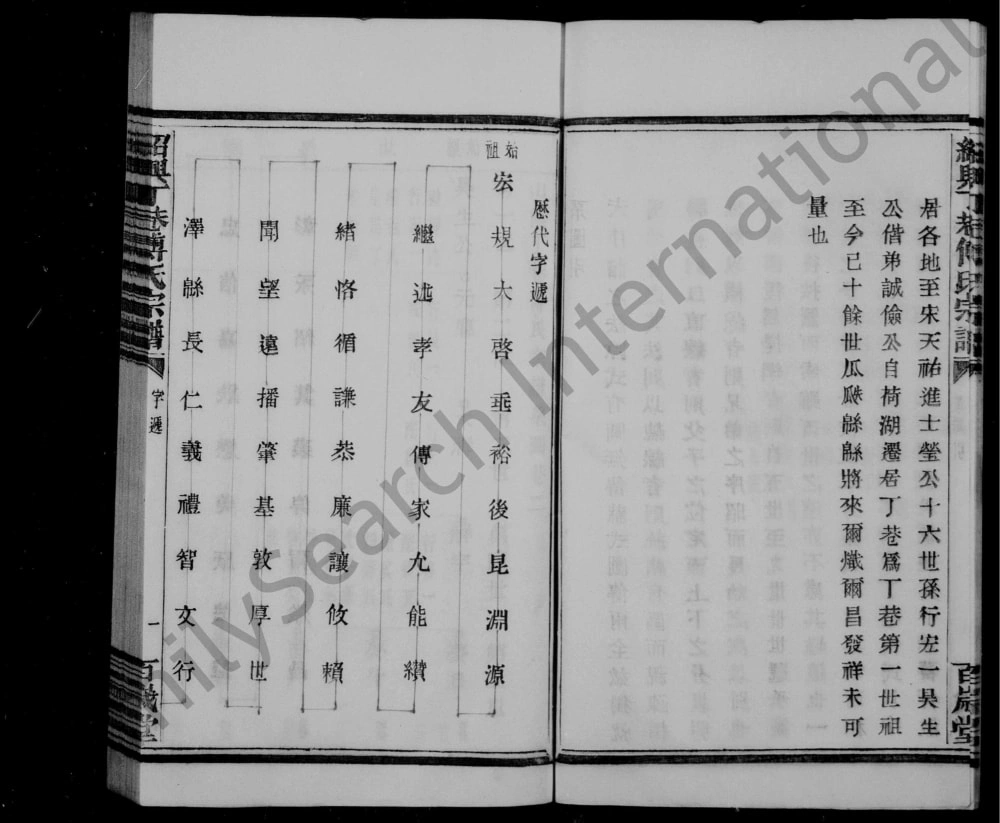 紹興丁巷傅氏宗譜
百歲堂
居各地至宋天祐進士瑩公十六世孫行宏一昊生
公偕弟誠儉公自荷湖遷居丁巷爲丁巷第一世祖
至今已十餘世瓜瓞緜緜將來爾熾爾昌發祥未可
量也
歷代字遞
始祖
宏規大啓垂裕後昆淵源
繼述孝友傳家允能纘
緒恪循謙恭廉讓攸賴
聞望遠播肇基敦厚世
澤緜長仁義禮智文行
紹興丁巷傅氏宗譜
字遞
一
百歲堂
FamilySearch International